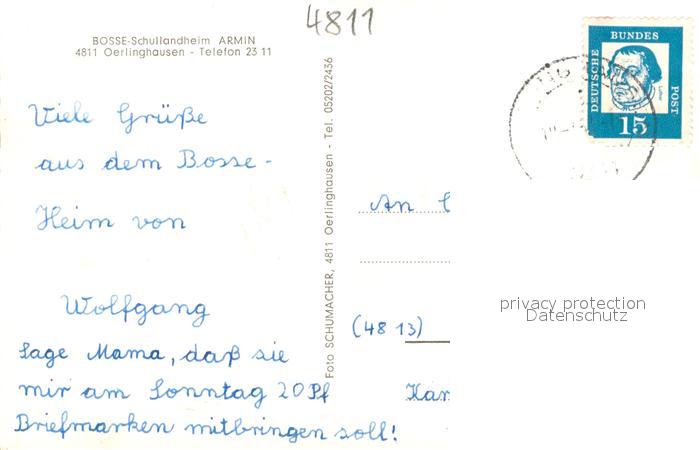 4811
BOSSE-Schullandheim ARMIN
4811 Oerlinghausen - Telefon 23 11
Viele Grüße
aus dem Bosse-
Heim von
Wolfgang
Sage Mama, daß sie
mir am Sonntag 20 Pf
Briefmarken mitbringen soll!
Foto SCHUMACHER, 4811 Oerlinghausen - Tel. 05202/2436
DEUTSCHE
BUNDES
POST
15
An
(48 13)
privacy protection
Datenschutz